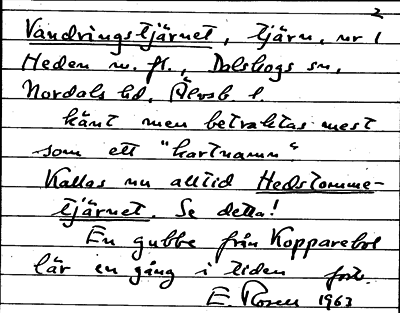 2
Vandringstjärnet, tjärn, nr 1
Heden m. fl., Dalskogs sn,
Nordals hd, Älvsb. l.
känt men betraktas mest
som ett "kartnamn".
Kallas nu alltid Hedstomme-
tjärnet. Se detta!
En gubbe från Kopparebol
lär en gång i tiden forts.
E. Rosen 1963